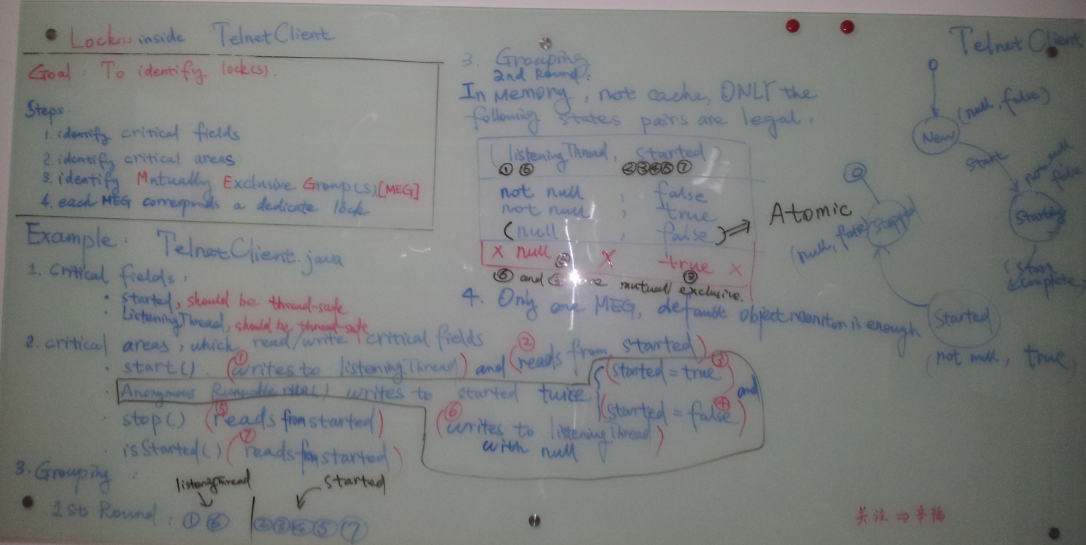 Lock(s) inside TelnetClient
Goal: To identify lock(s).
Steps
1. identify critical fields
2. identify critical areas
3. identify Mutually Exclusive Group(s) [MEG]
4. each MEG corresponds a dedicate lock
Example: TelnetClient.java
1. Critical fields:
• started, should be thread-safe
• ListeningThread, should be thread-safe
2. critical areas, which read/write critical fields
• start() ① (writes to listeningThread) and ② (reads from started)
• Anonymous Runnable writes to started twice { (started = true) ③ and
(started = false) ④
• stop() ⑤ (reads from started) ⑥ (writes to listeningThread)
with null
• isStarted() ⑦ (reads from started)
3. Grouping:
listeningThread started
1st Round: ① ⑥ | ② ③ ④ ⑤ ⑦
3. Grouping
2nd Round:
In Memory, not cache, ONLY the
following states pairs are legal.
(listeningThread, started
① ⑥ ② ③ ④ ⑤ ⑦
not null , false
not null , true
(null , false) ⇒ Atomic
X null X true X
⑥ and ③ are mutual exclusive.
4. Only one MEG, default object monitor is enough
TelnetClient
(null, false)
New
start
not null
false
Starting
(start
complete)
Started
(not null, true)
Stopped
(null, false)
关注⇒幸福